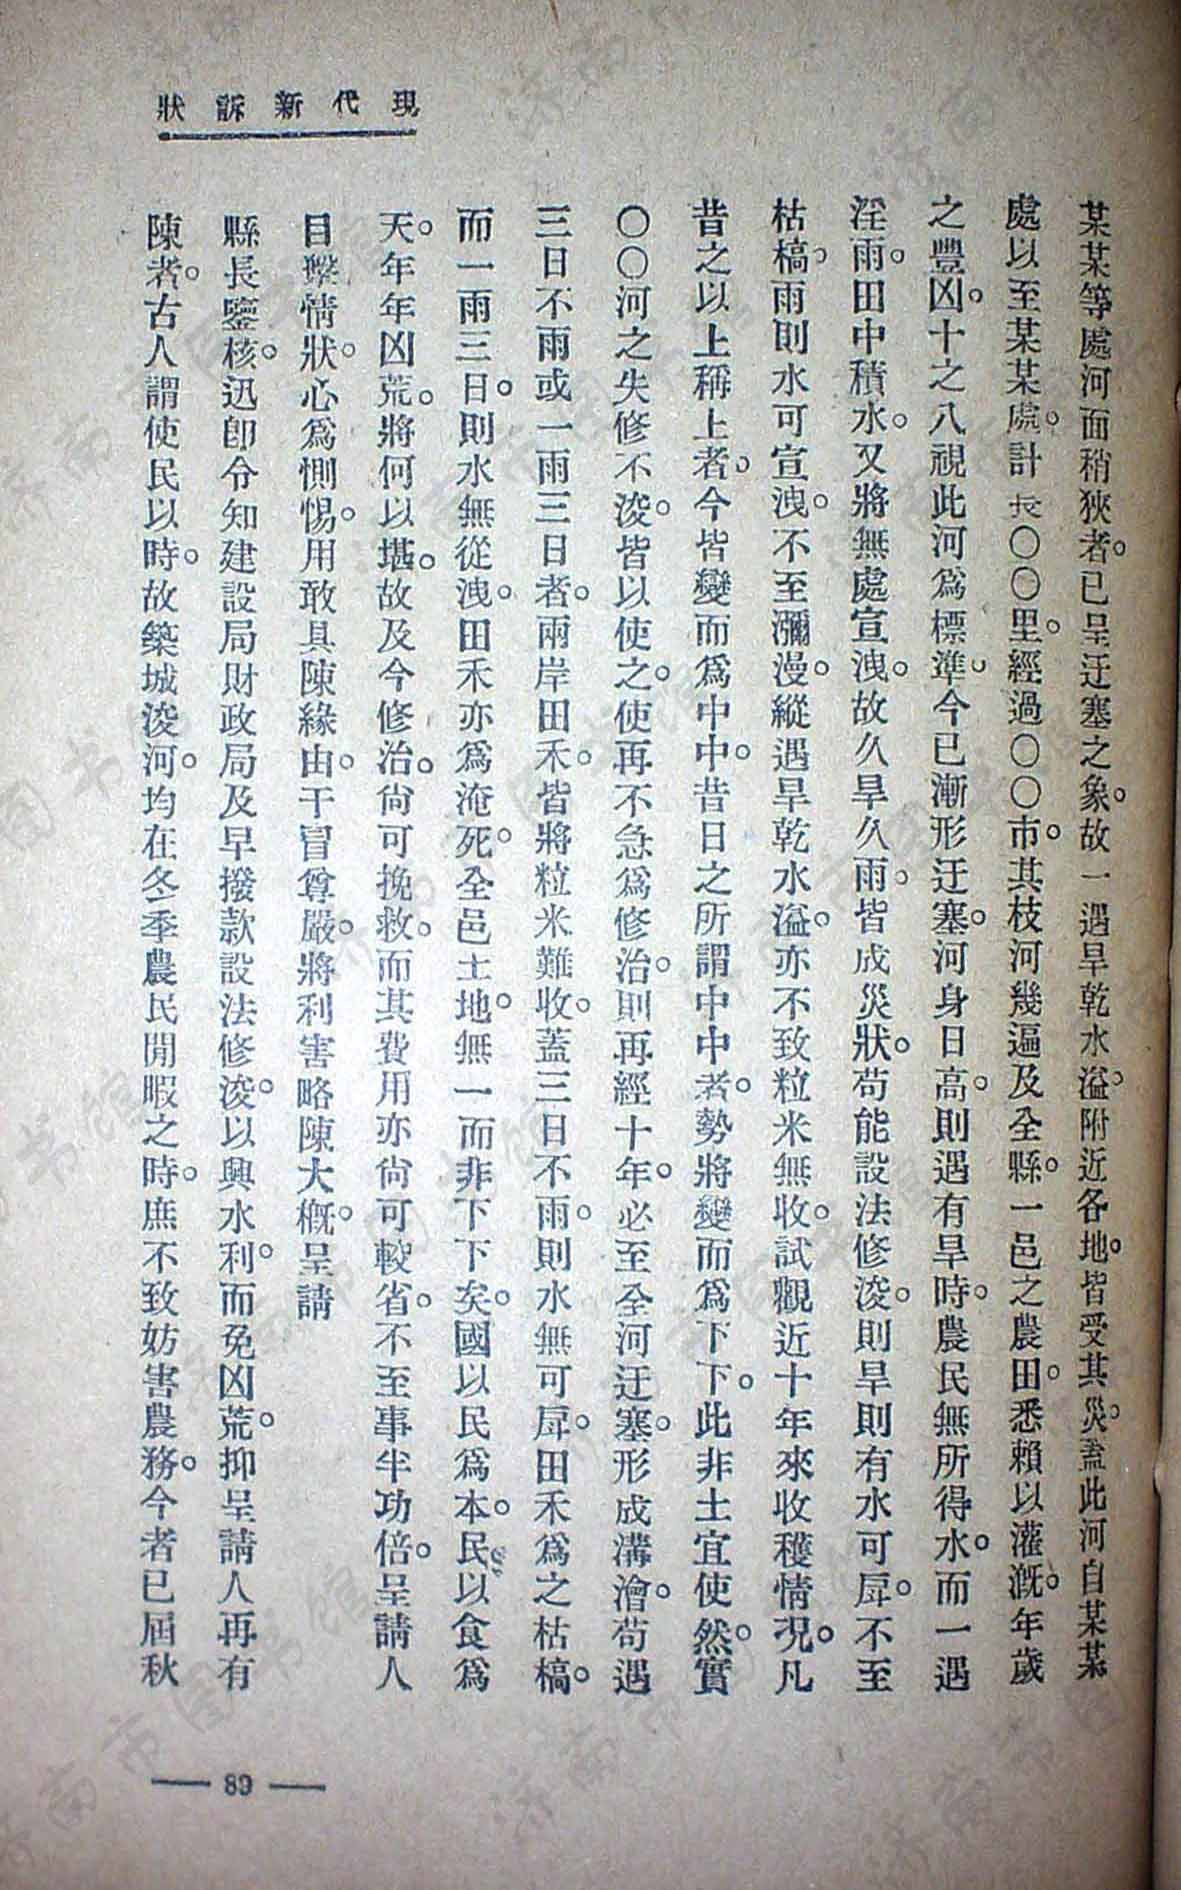 現代新訴狀
某某等處河面稍狹者。已呈迂塞之象。故一遇旱乾水溢。附近各地。皆受其災。蓋此河自某某
處以至某某處。計長〇〇里。經過〇〇市。其枝河幾遍及全縣。一邑之農田。悉賴以灌溉。年歲
之豐凶。十之八視此河爲標準。今已漸形迂塞。河身日高。則遇有旱時。農民無所得水。而一遇
淫雨。田中積水。又將無處宣洩。故久旱久雨。皆成災狀。苟能設法修浚。則旱則有水可戽。不至
枯槁。雨則水可宣洩。不至瀰漫。縱遇旱乾水溢。亦不致粒米無收。試觀近十年來收穫情况。凡
昔之以上稱上者。今皆變而爲中中。昔日之所謂中中者。勢將變而爲下下。此非土宜使然。實
〇〇河之失修不浚。皆以使之。使再不急爲修治。則再經十年。必至全河迂塞。形成溝澮。苟遇
三日不雨或一雨三日者。兩岸田禾。皆將粒米難收。蓋三日不雨。則水無可戽。田禾爲之枯槁。
而一雨三日。則水無從洩。田禾亦爲淹死。全邑土地。無一而非下下矣。國以民爲本。民以食爲
天。年年凶荒。將何以堪。故及今修治。尙可挽救。而其費用亦尙可較省。不至事半功倍。呈請人
目擊情狀。心爲惻惕。用敢具陳緣由。干冒尊嚴。將利害略陳大概。呈請
縣長鑒核。迅卽令知建設局財政局及早撥款設法修浚。以興水利。而免凶荒。抑呈請人再有
陳者。古人謂使民以時。故築城浚河。均在冬季農民閒暇之時。庶不致妨害農務。今者已屆秋
— 89 —
济南市图书馆